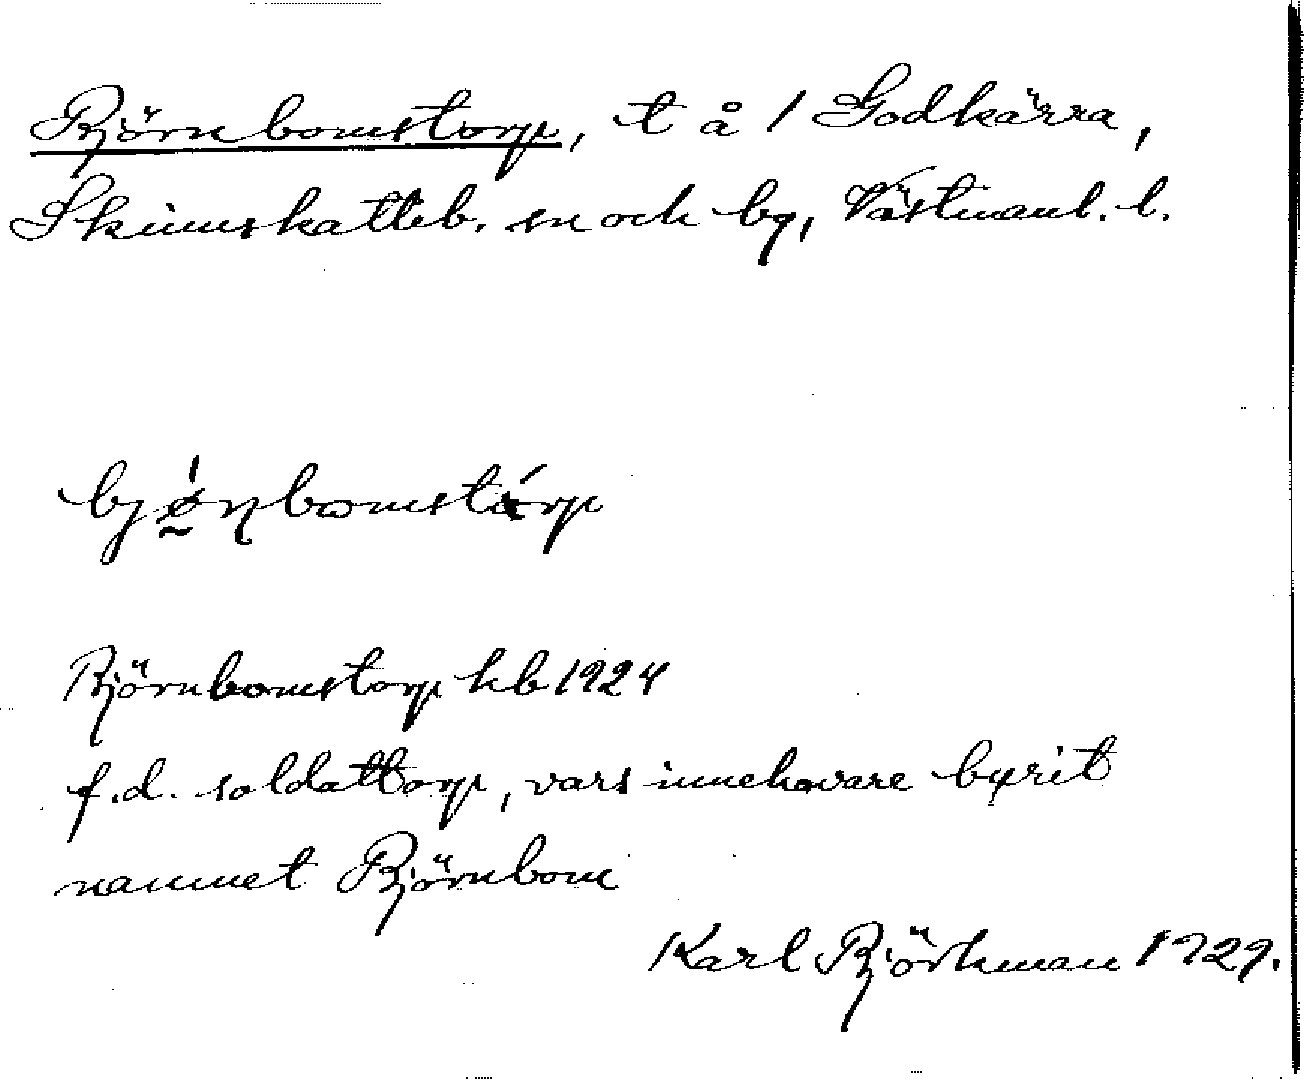 Björnbomstorp, t å / Godkärra,
Skinnskatteb. sn och bg, Västmanl. l.
bjö̀ɳbomstórp
Björnbomstorp kb 1924
f.d. soldattorp, vars innehavare byrit
namnet Björnbom
Karl Björkman 1929.